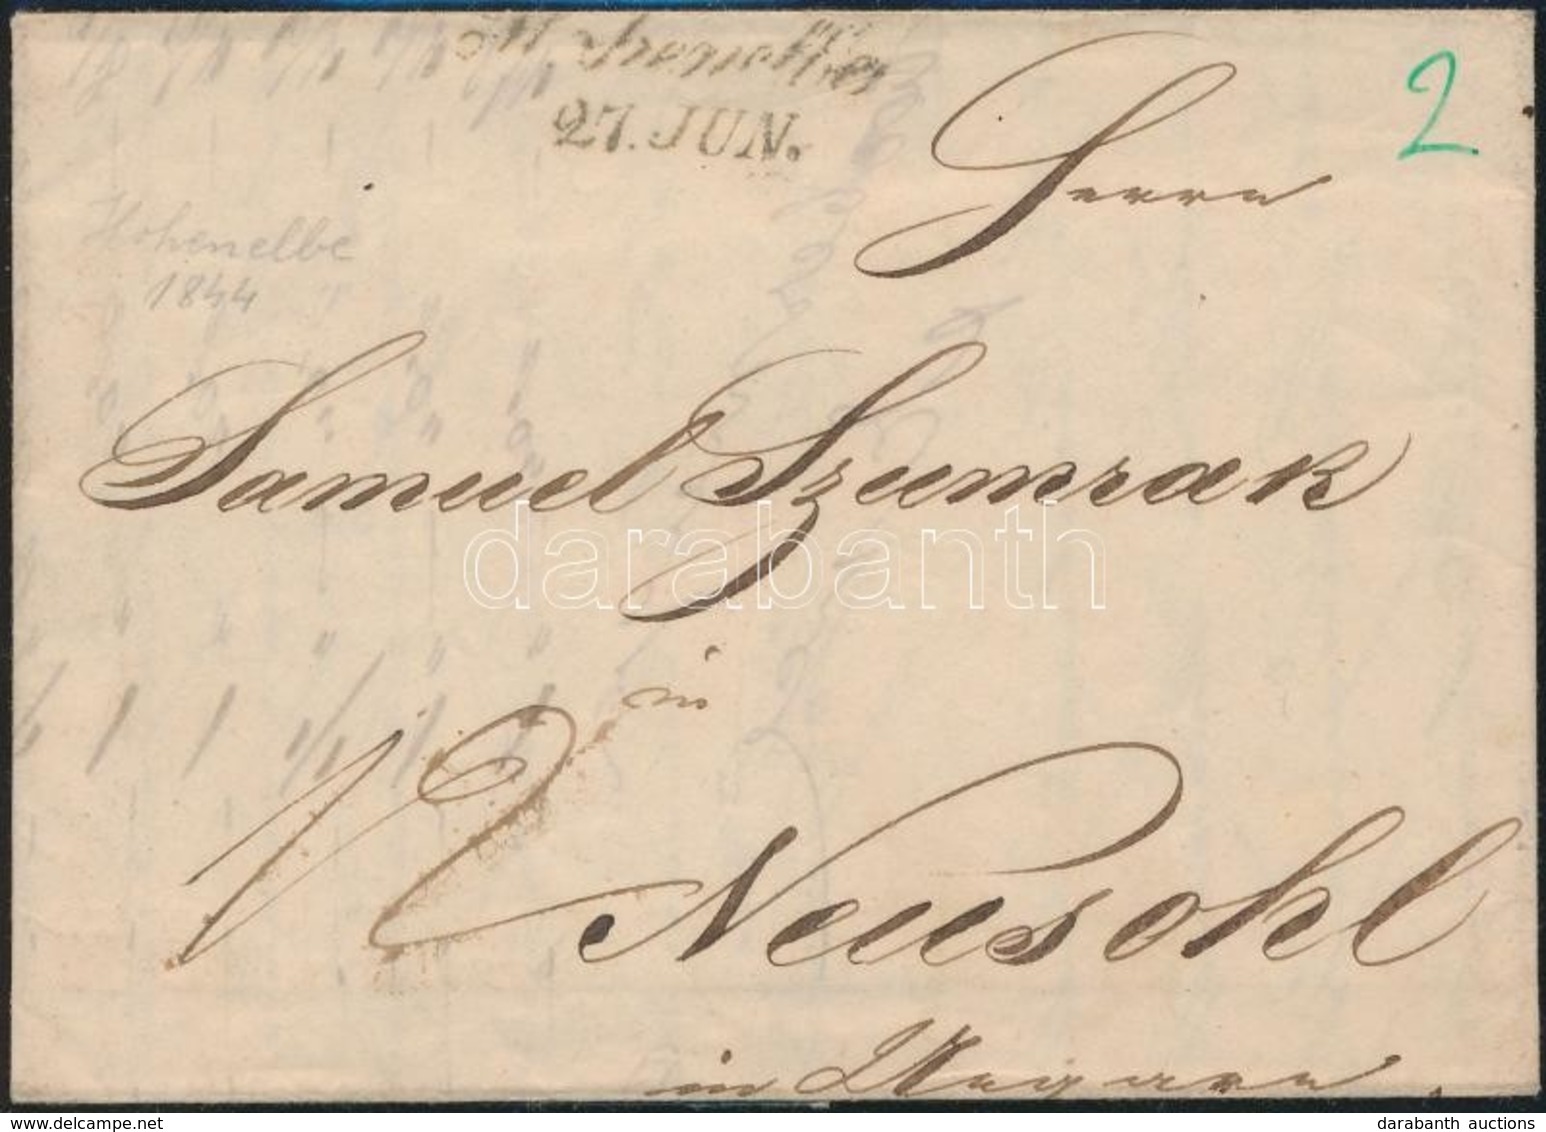 Hohenelbe
27. JUN.
2
Herrn
Hohenelbe
1844
Samuel Szumrak
darabanth
in
12
Neusohl
in Ungarn.
darabanth auctions
delcampe.net